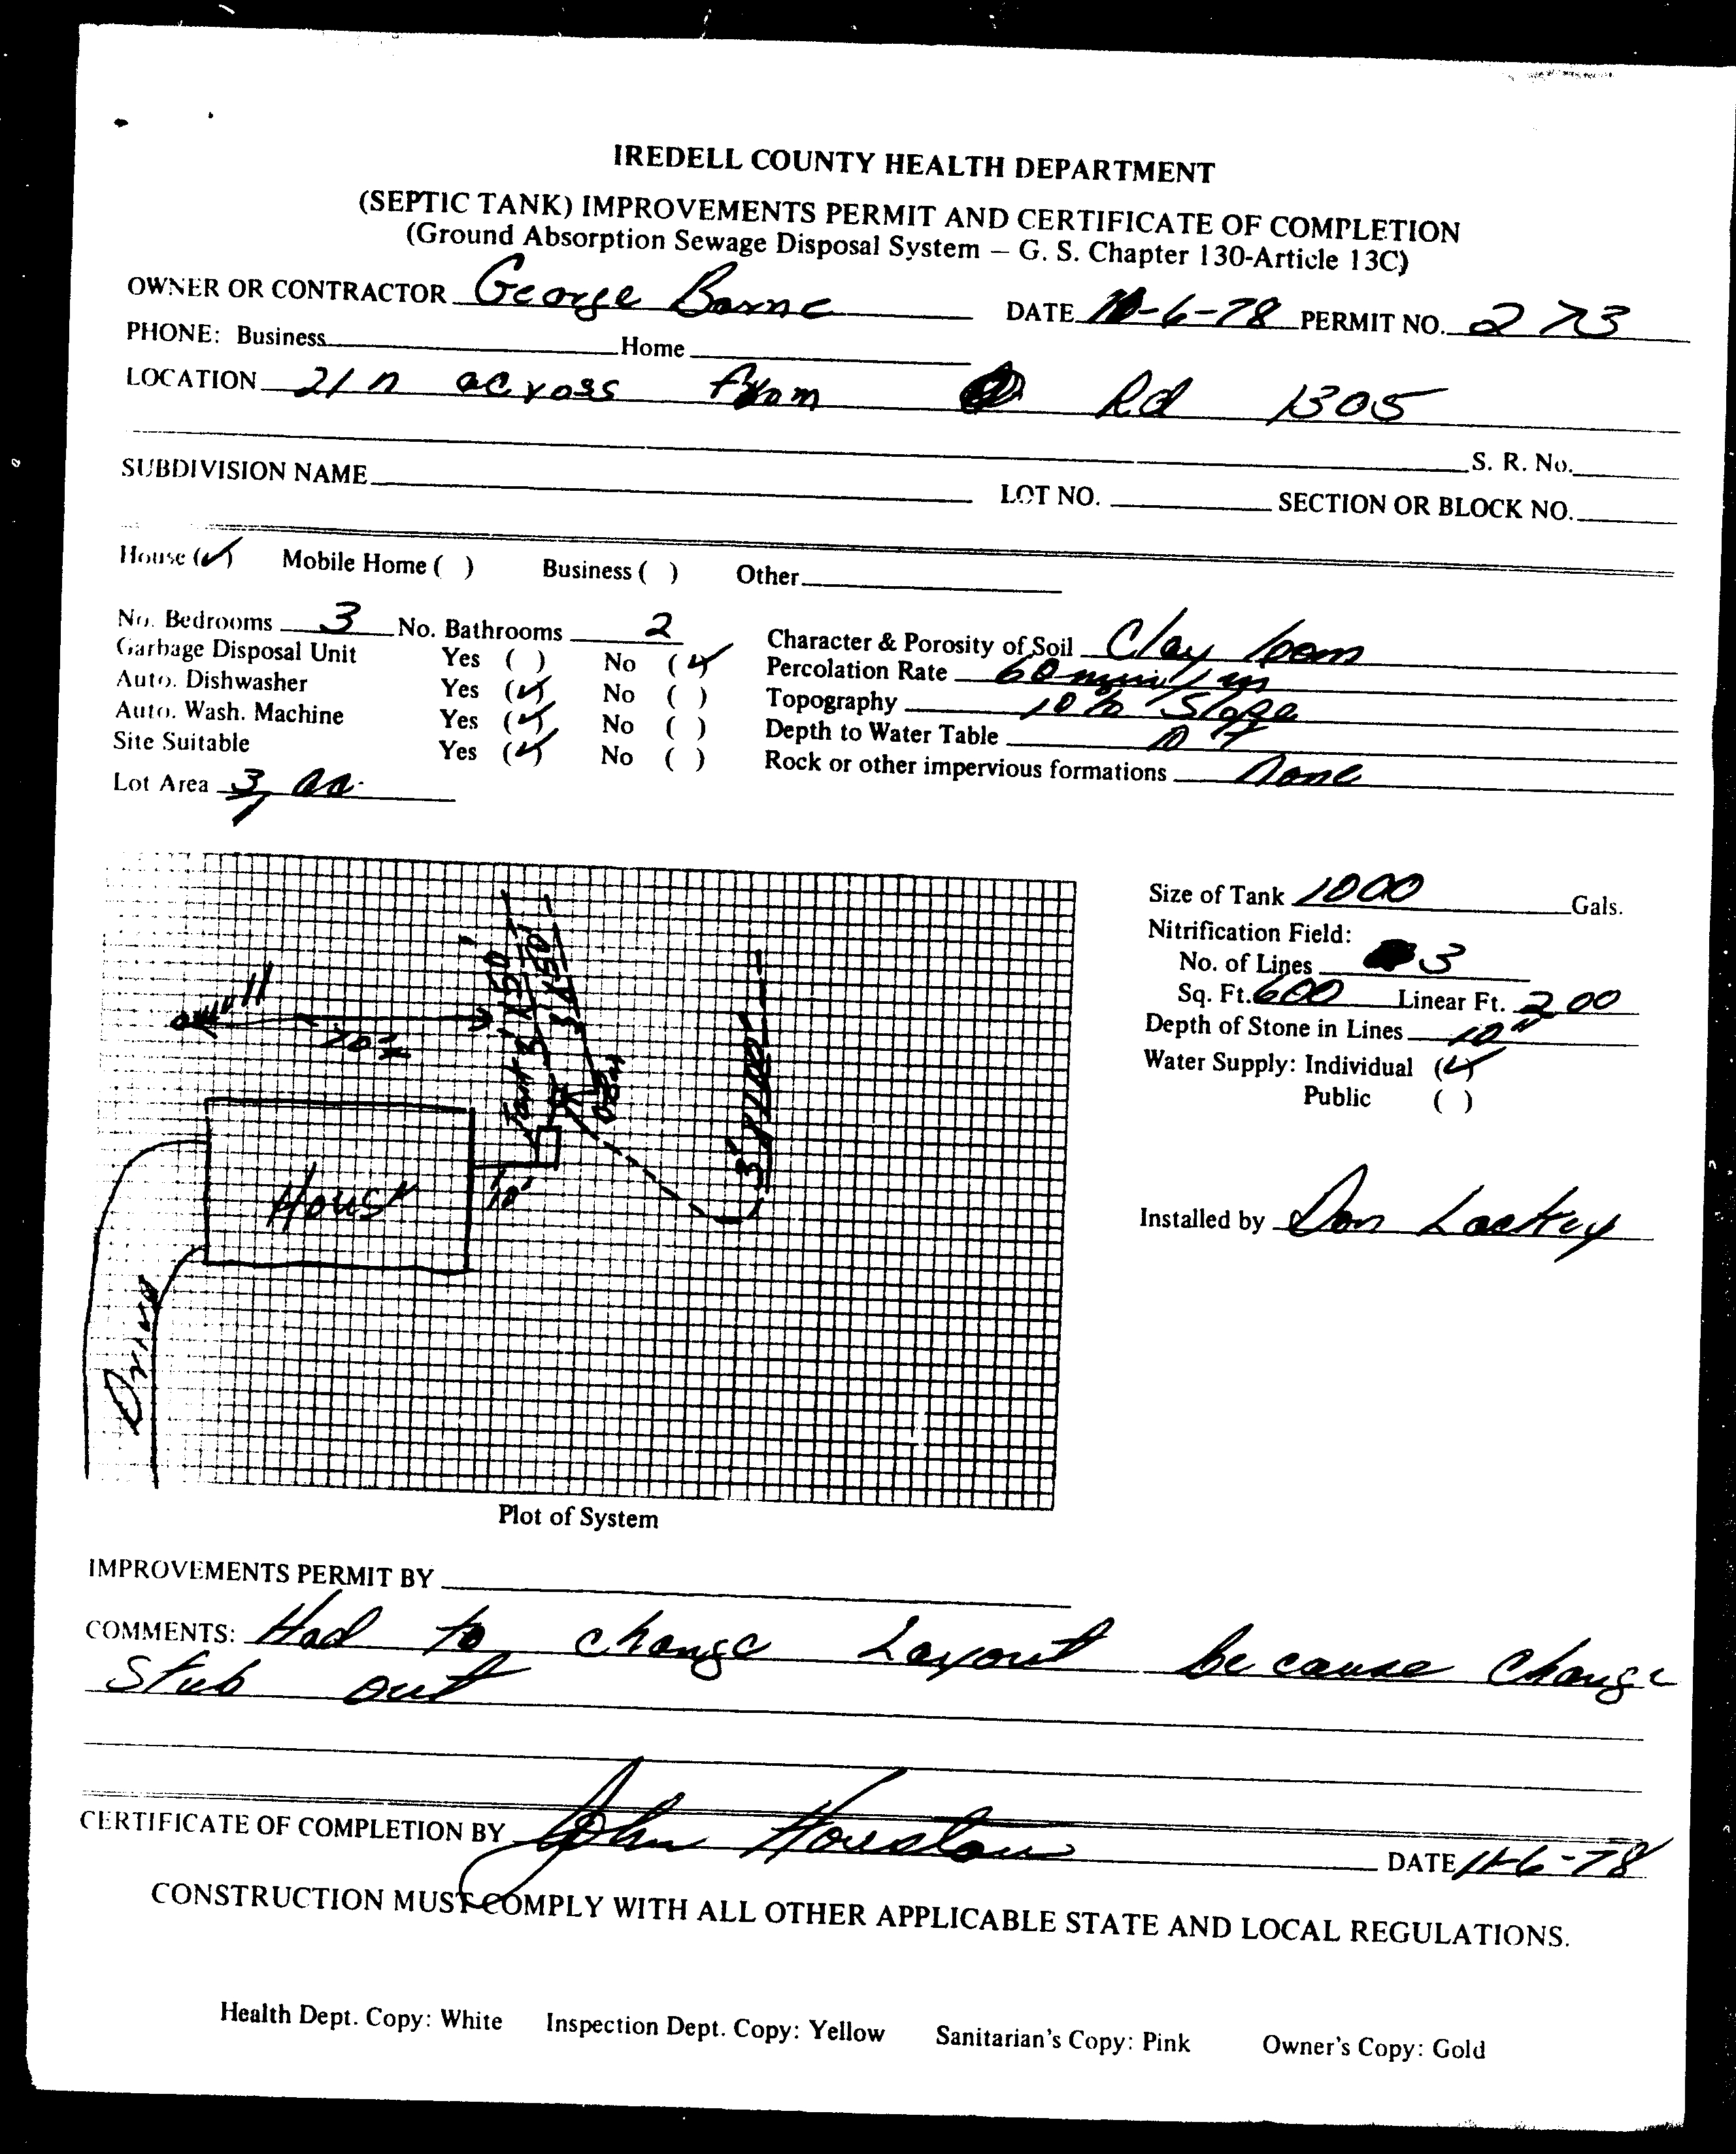 IREDELL COUNTY HEALTH DEPARTMENT
(SEPTIC TANK) IMPROVEMENTS PERMIT AND CERTIFICATE OF COMPLETION
(Ground Absorption Sewage Disposal System – G. S. Chapter 130-Article 13C)
OWNER OR CONTRACTOR George DATE -6-78 PERMIT NO. 273
PHONE: Business Home
LOCATION 21 n across from Rd 1305
S. R. No.
SUBDIVISION NAME LOT NO. SECTION OR BLOCK NO.
House (✓) Mobile Home ( ) Business ( ) Other
No. Bedrooms 3 No. Bathrooms 2 Character & Porosity of Soil Clay loam
Garbage Disposal Unit Yes ( ) No (✓) Percolation Rate 60 min/in
Auto. Dishwasher Yes (✓) No ( ) Topography 10% Slope
Auto. Wash. Machine Yes (✓) No ( ) Depth to Water Table
Site Suitable Yes (✓) No ( ) Rock or other impervious formations None
Lot Area 3
Size of Tank 1000 Gals.
Nitrification Field:
No. of Lines 3
Sq. Ft. 600 Linear Ft. 200
Depth of Stone in Lines 10"
Water Supply: Individual (✓)
Public ( )
well
70'
Tank
3' X 50'
3' X 50'
3' X 100'
10'
House
Drive
Installed by Don Lackey
Plot of System
IMPROVEMENTS PERMIT BY
COMMENTS: Had to change Layout because change
Stub out
CERTIFICATE OF COMPLETION BY John Houston DATE 11-6-78
CONSTRUCTION MUST COMPLY WITH ALL OTHER APPLICABLE STATE AND LOCAL REGULATIONS.
Health Dept. Copy: White Inspection Dept. Copy: Yellow Sanitarian's Copy: Pink Owner's Copy: Gold